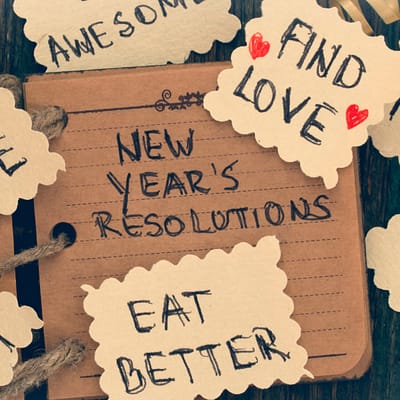 AWESOME
FIND
LOVE
NEW
YEAR'S
RESOLUTIONS
EAT
BETTER